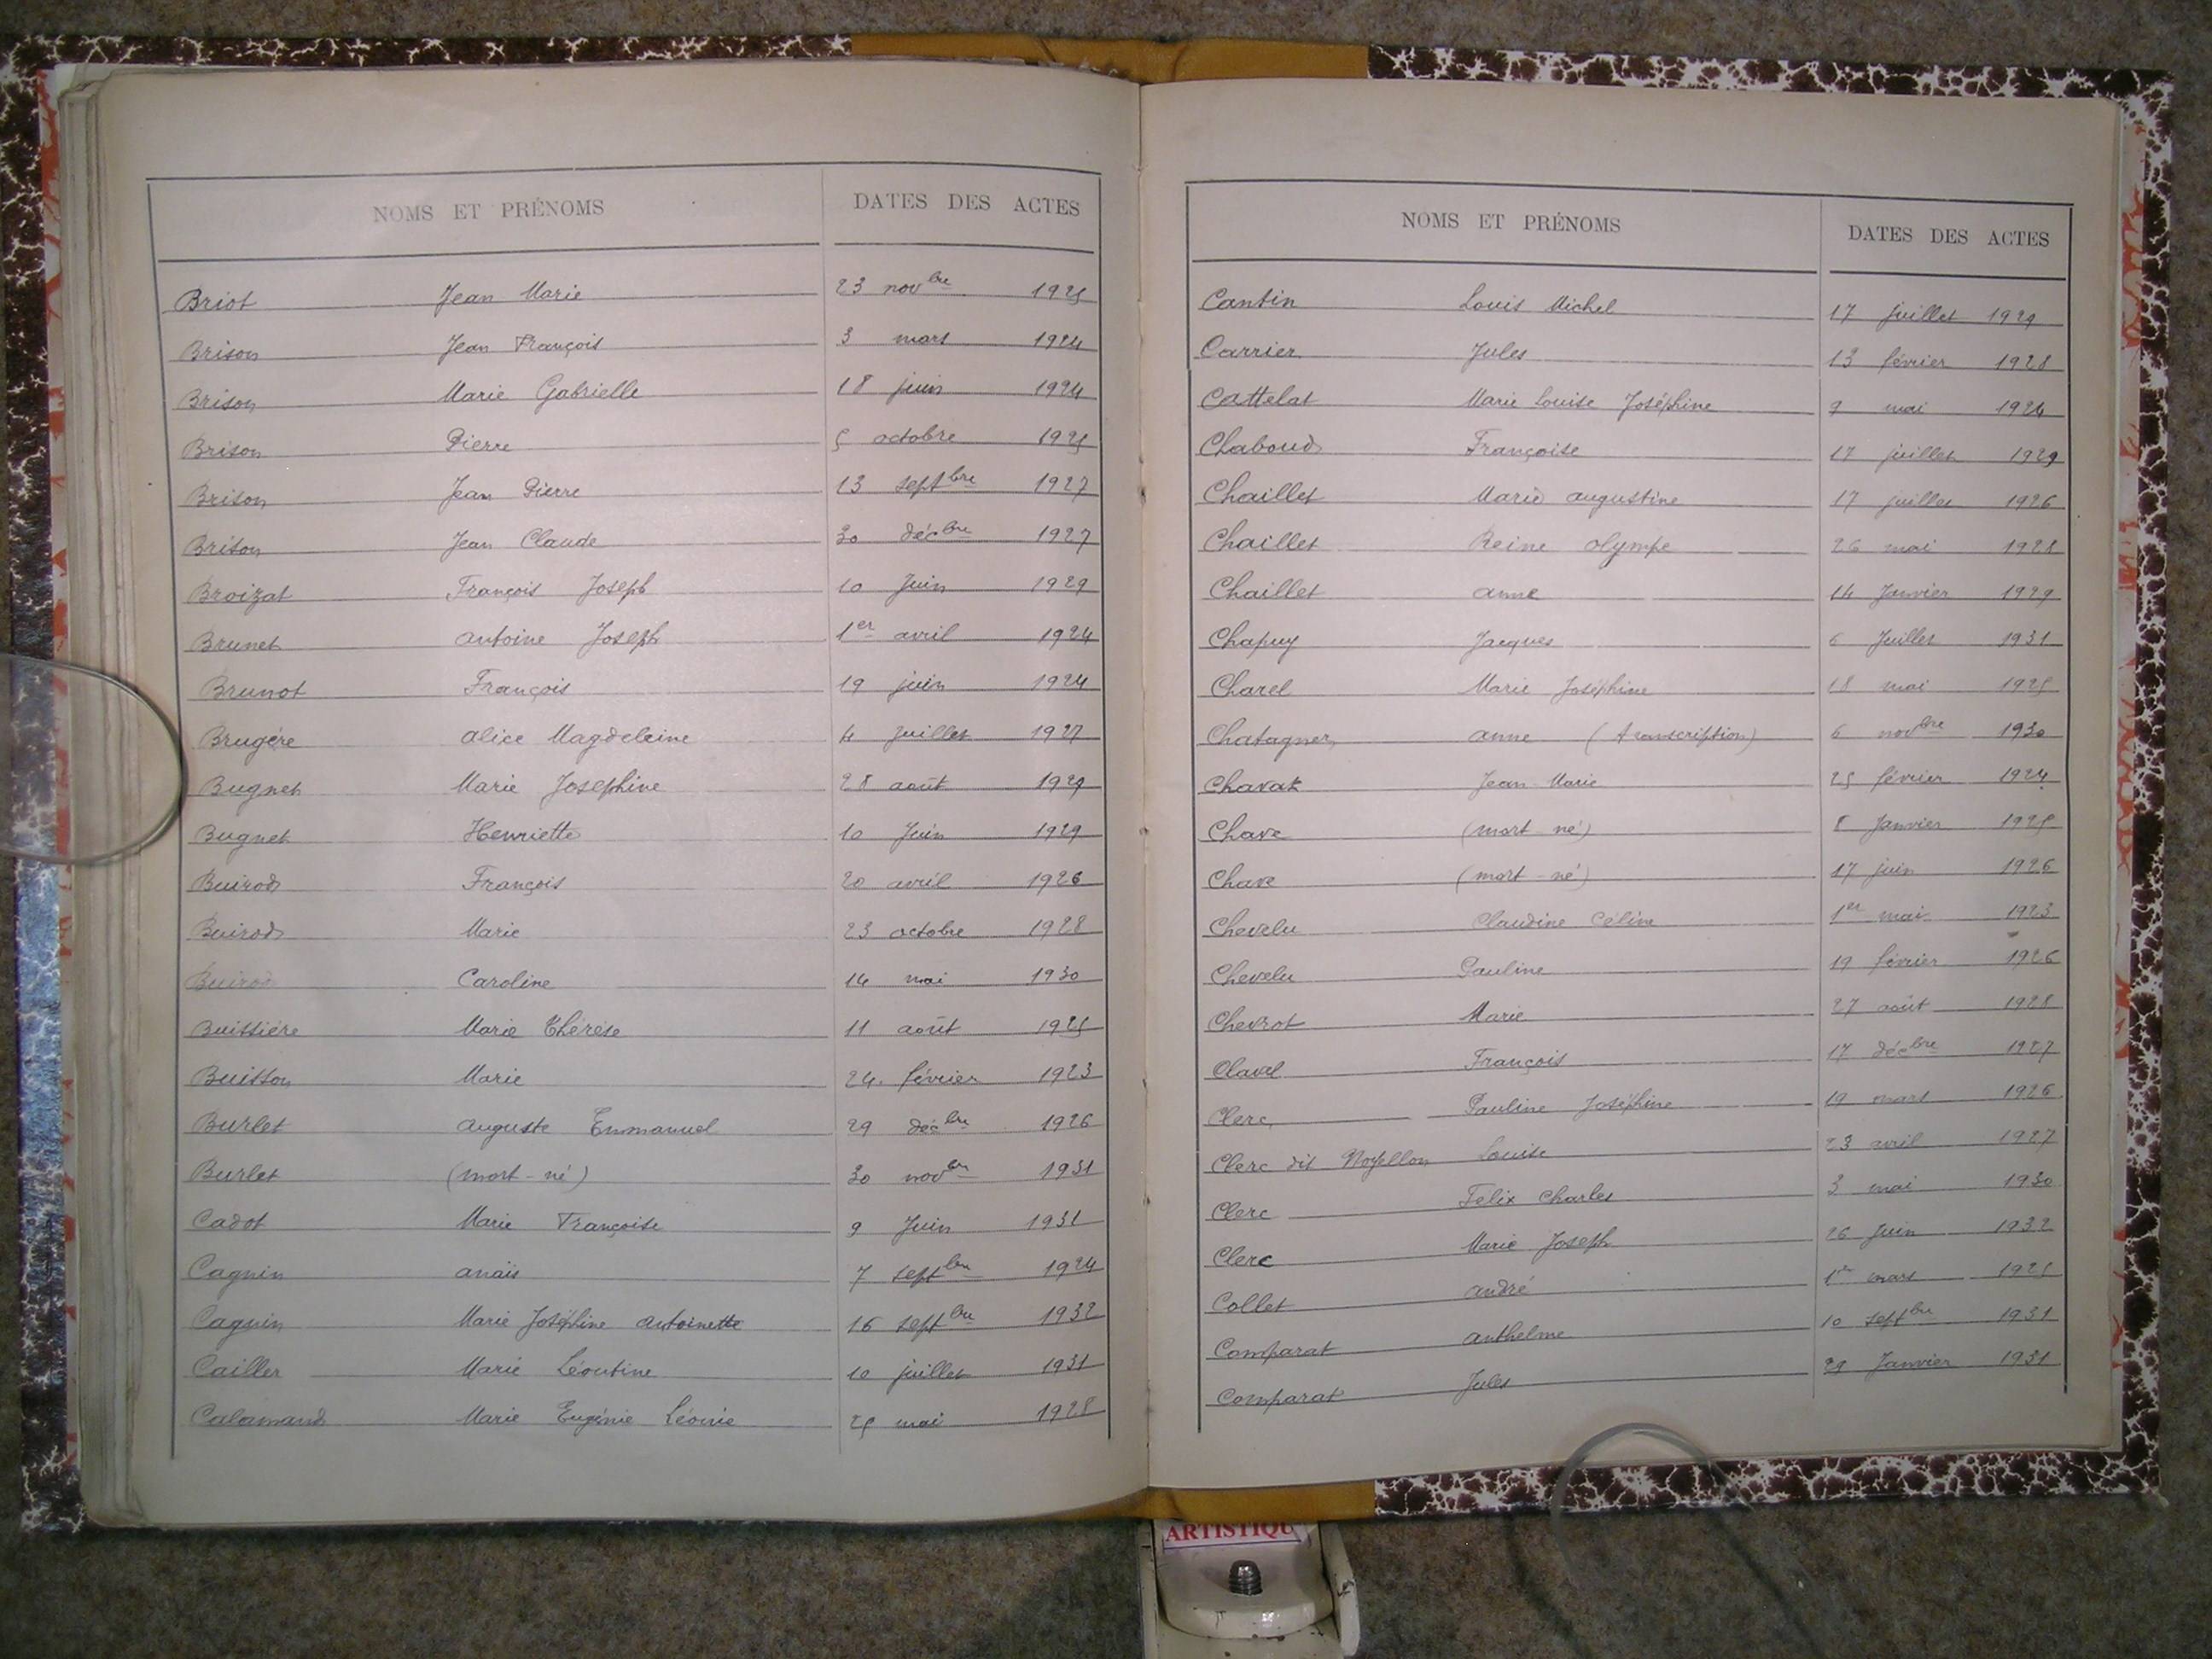 NOMS ET PRÉNOMS DATES DES ACTES
Briot Jean Marie 23 novbre 1925
Brison Jean François 3 mars 1924
Brison Marie Gabrielle 18 juin 1924
Brison Pierre 5 octobre 1925
Brison Jean Pierre 13 septbre 1927
Brison Jean Claude 30 décbre 1927
Broizat François Joseph 10 Juin 1929
Brunet antoine Joseph 1er avril 1924
Brunot François 19 juin 1924
Brugère alice Magdeleine 4 Juillet 1927
Bugnet Marie Josephine 28 août 1929
Bugnet Henriette 10 Juin 1929
Buirod François 20 avril 1926
Buirod Marie 23 octobre 1928
Buirod Caroline 14 mai 1930
Buissière Marie Thérèse 11 août 1925
Buisson Marie 24 février 1923
Burlet auguste Emmanuel 29 décbre 1926
Burlet (mort-né) 30 novbre 1931
Cadot Marie Françoise 9 Juin 1931
Cagnin anaïs 7 septbre 1924
Cagnin Marie Joséphine antoinette 16 septbre 1932
Cailler Marie Léontine 10 juillet 1931
Calamand Marie Eugénie Léonie 25 mai 1928
NOMS ET PRÉNOMS DATES DES ACTES
Cantin Louis Michel 17 juillet 1929
Carrier Jules 13 février 1928
Cattelat Marie Louise Joséphine 9 mai 1924
Chaboud Françoise 17 juillet 1929
Chaillet Marie augustine 17 juillet 1926
Chaillet Reine olympe 26 mai 1928
Chaillet anne 14 Janvier 1929
Chapuy Jacques 6 Juillet 1931
Charel Marie Joséphine 18 mai 1925
Chatagner anne (transcription) 6 novbre 1930
Chavat Jean-Marie 25 février 1924
Chave (mort-né) 8 Janvier 1925
Chave (mort-né) 17 juin 1926
Chevelu Claudine Céline 1er mai 1923
Chevelu Pauline 19 février 1926
Chevrot Marie 27 août 1928
Clavel François 17 décbre 1927
Clerc Pauline Joséphine 19 mars 1926
Clerc dit Louise 23 avril 1927
Clerc Felix Charles 3 mai 1930
Clerc Marie Joseph 26 Juin 1932
Collet andré 1er mars 1925
Comparat anthelme 10 septbre 1931
Comparat Jules 29 Janvier 1931
ARTISTIQU